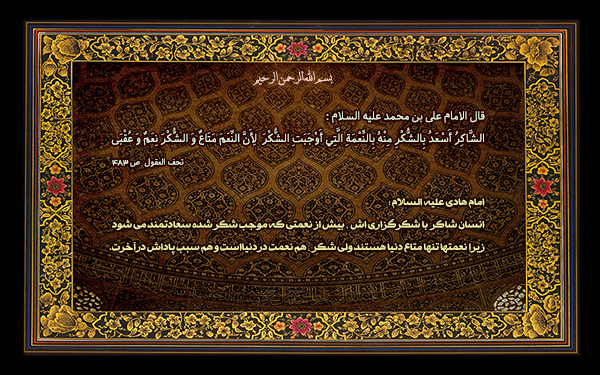 بسم الله الرحمن الرحیم
قال الامام علی بن محمد علیه السلام :
الشَّاكِرُ أَسْعَدُ بِالشُّكْرِ مِنْهُ بِالنِّعْمَةِ الَّتِي أَوْجَبَتِ الشُّكْرَ لِأَنَّ النِّعَمَ مَتَاعٌ وَ الشُّكْرَ نِعَمٌ وَ عُقْبَى
تحف العقول ص ۴۸۳
امام هادی علیه السلام :
انسان شاکر با شکرگزاری اش ، بیش از نعمتی که موجب شکر شده سعادتمند می شود
زیرا نعمتها تنها متاع دنیا هستند ولی شکر ، هم نعمت در دنیا است و هم سبب پاداش در آخرت.